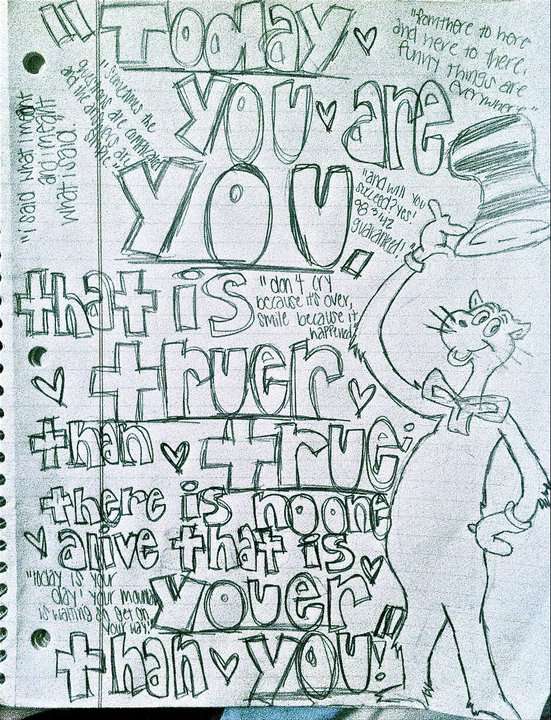 "Today
you are
you.
that is
truer
than true;
there is no one
alive that is
youer
than you!"
"from there to here
and here to there,
funny things are
everywhere"
"sometimes the
questions are complicated
and the answers are
simple"
"i said what i meant
and meant
what i said.
"and will you
succeed? yes!
98 3/4 %
guaranteed!"
"don't cry
because it's over,
smile because it
happened"
"today is your
day! your mountain
is waiting so get on
your way!